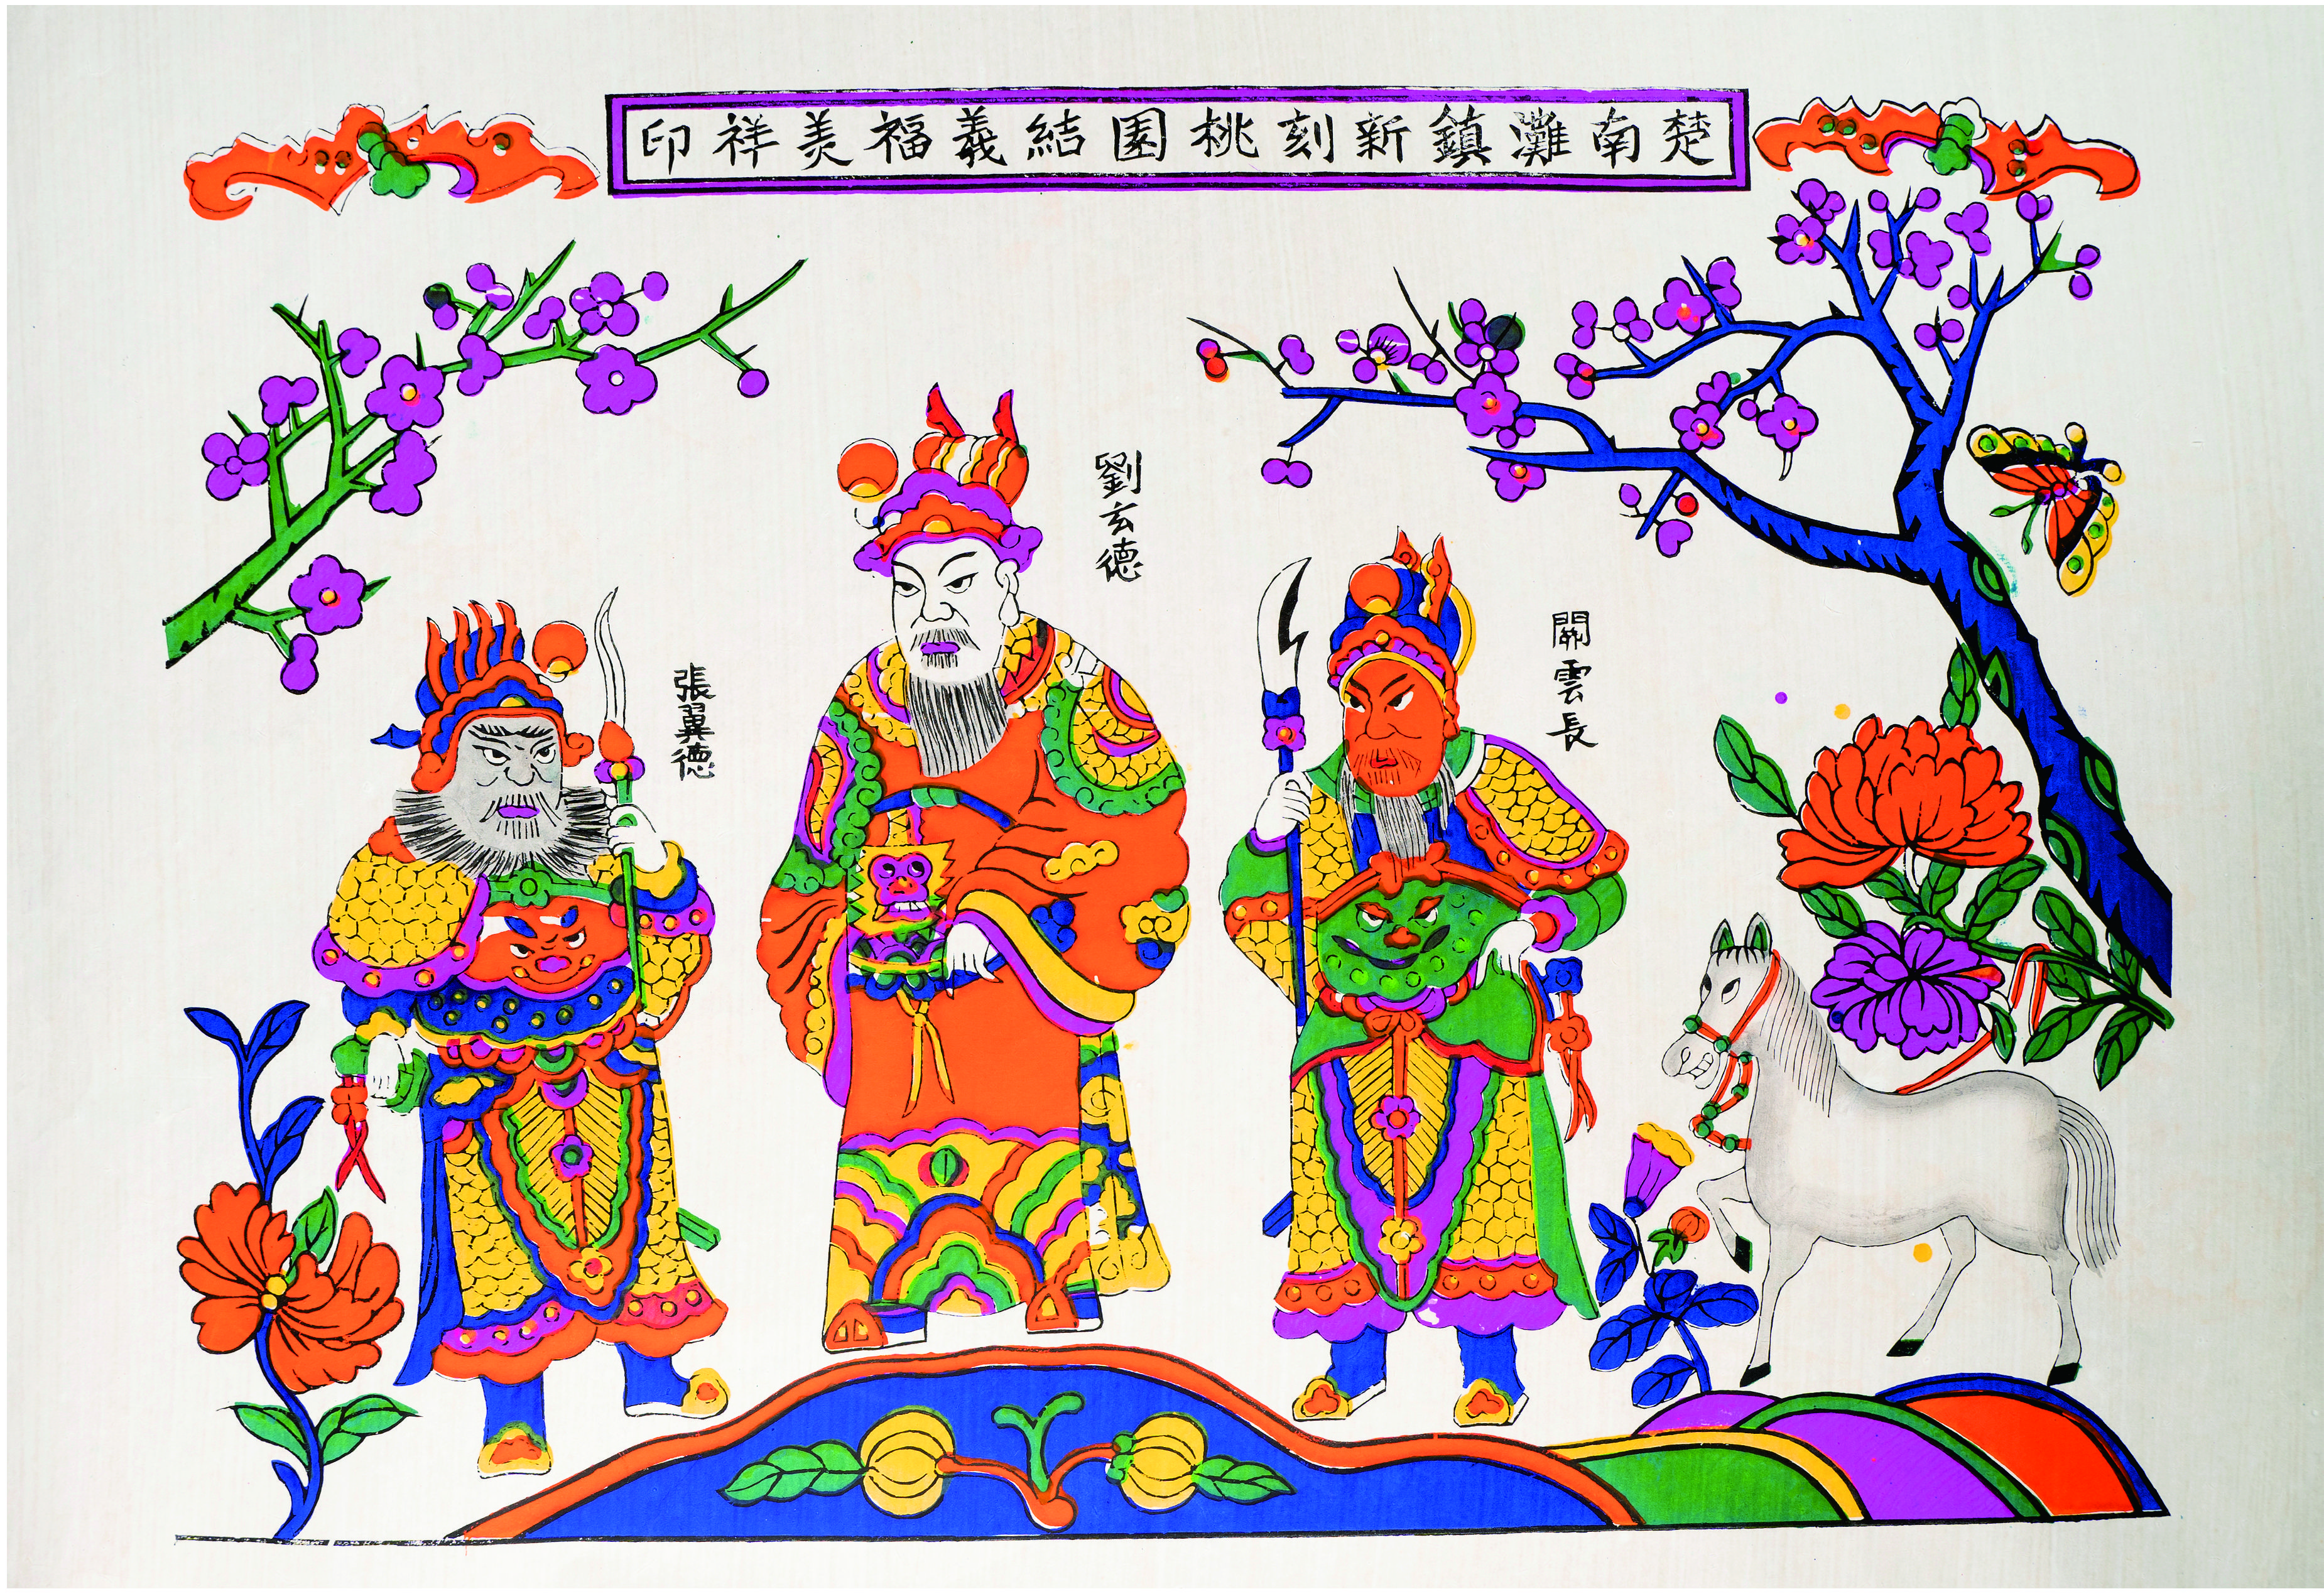 楚南灘鎮新刻桃園結義福美祥印
劉玄德
關雲長
張翼德